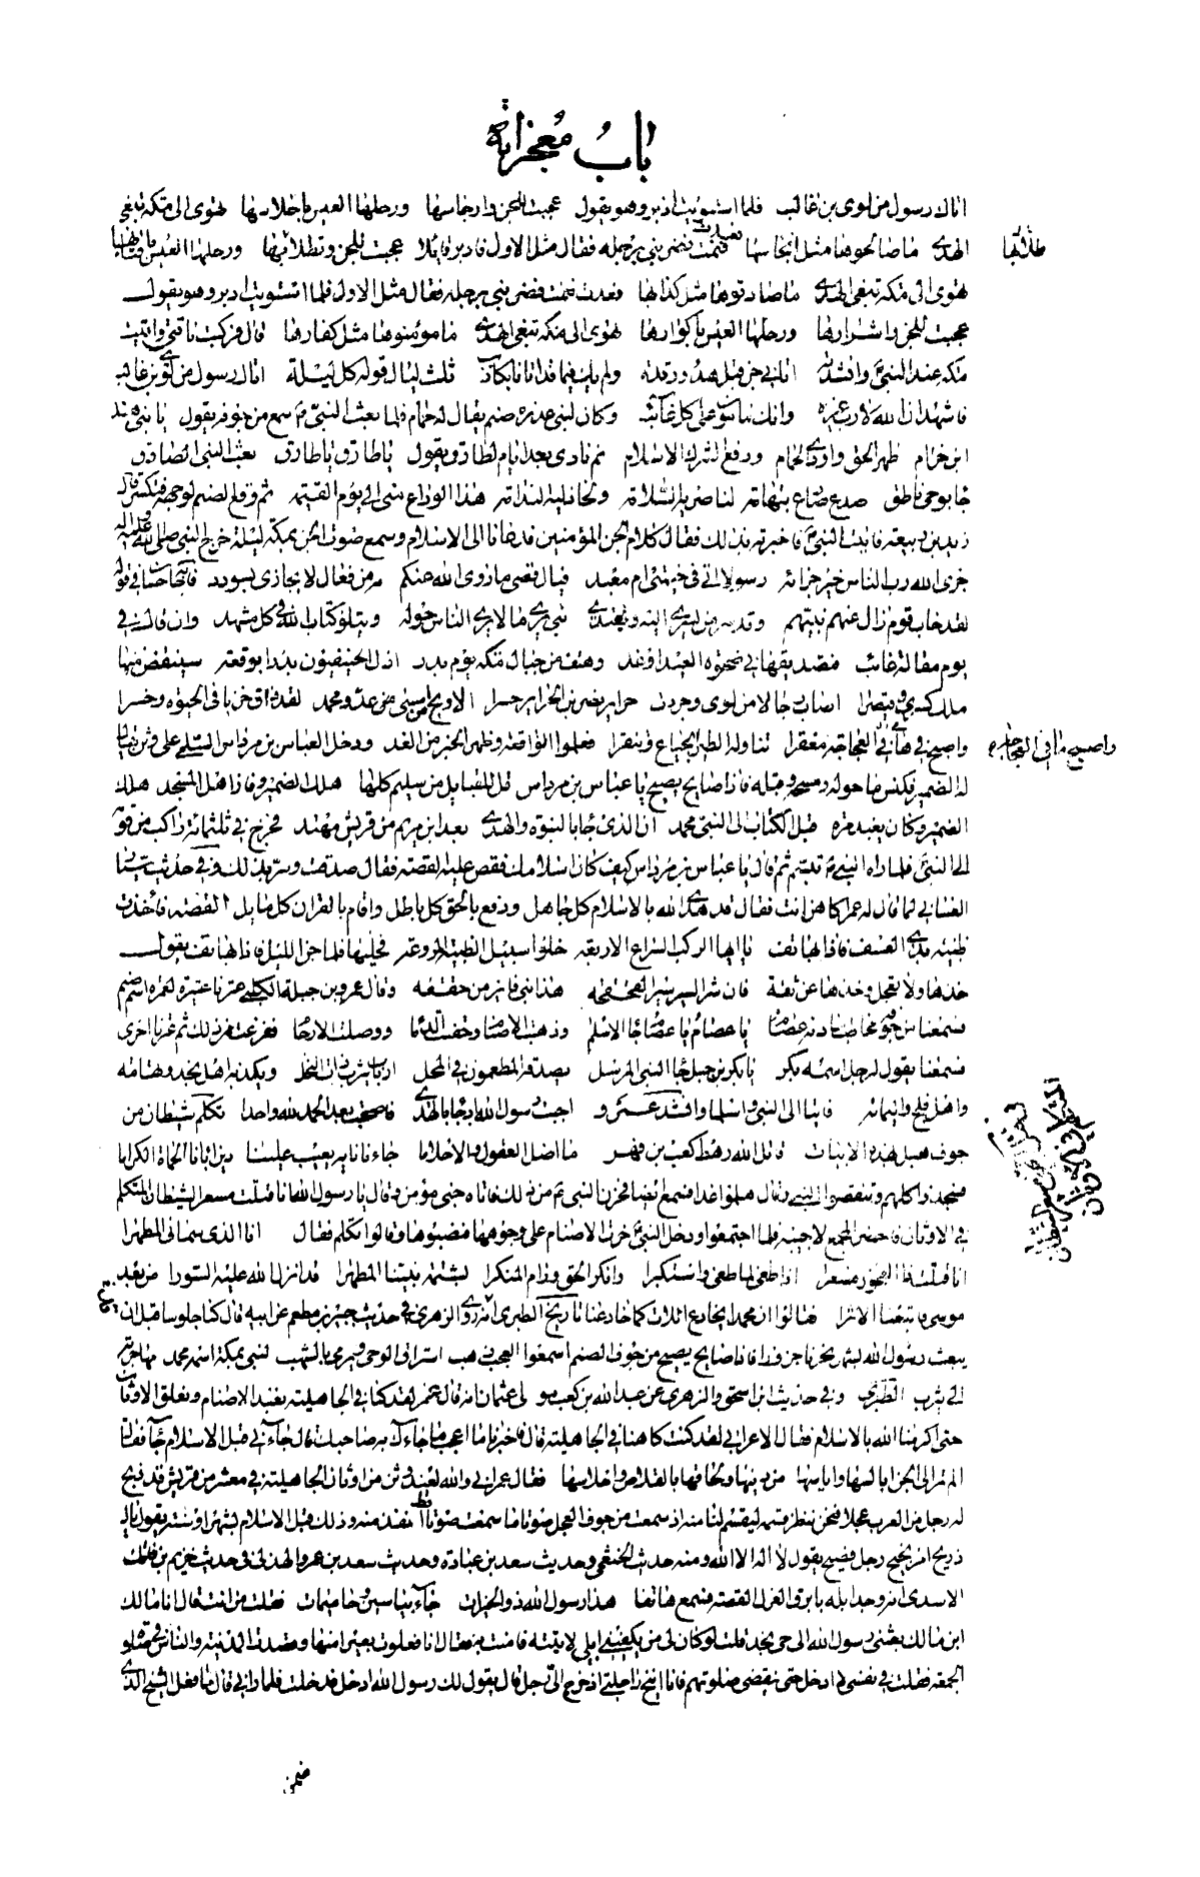 باب معجزاته
اتاك رسول من لوى بن غالب فلما استويت ادبر وهو يقول عجبت للجن وارجاسها ورحلها العيس باحلاسها تهوى الى مكة تبغى
الهدى ما صالحوها مثل انجاسها فنمت فضربنى برجله فقال مثل الاول فادبر قائلا عجبت للجن وتطلابها ورحلها العيس باقتابها
طلابها
تهوى الى مكة تبغى الهدى ما صادقوها مثل كذابها فعدت فنمت فضربنى برجله فقال مثل الاول فلما استويت ادبر وهو يقول
عجبت للجن واشرارها ورحلها العيس باكوارها تهوى الى مكة تبغى الهدى ما مؤمنوها مثل كفارها قال فركبت ناقتى واتيت
مكة عند النبى وانشدته اتانى جن قبل هدء ورقدة ولم يك فيما قد اتانا بكاذب ثلث ليال قوله كل ليلة اتاك رسول من لوى بن غالب
فاشهد ان الله لا رب غيره وانك مامون على كل غائب وكان لبنى عذرة صنم يقال له حمام فلما بعث النبى م سمع من جوفه يقول يا بنى هند
ابن حرام ظهر الحق واودى الحمام ودفع الشرك الاسلام ثم نادى بعد ايام لطارق يقول يا طارق يا طارق بعث النبى الصادق
جا بوحى ناطق صدع صادع بتهامة لناصريه السلامة ولخاذليه الندامة هذا الوداع منى الى يوم القيمة ثم وقع الصنم لوجهه فتكسر قال
زيد بن ربيعة فاتيت النبى م فاخبرته بذلك فقال كلام الجن المؤمنين فدعانا الى الاسلام وسمع صوت الجن بمكة ليلة خرج النبى صلى الله عليه واله
جزى الله رب الناس خير جزائه رسولا اتى فى خيمتى ام معبد فيال قصى ما زوى الله عنكم به من فعال لا يجازى بسودد فاجابه حسان فى قوله
لقد خاب قوم زال عنهم نبيهم وقدس من يسرى اليه ويغتدى نبى يرى ما لا يرى الناس حوله ويتلو كتاب الله فى كل مشهد وان قال فى
يوم مقالة غائب فتصديقها فى ضحوة العيد او غد وهتف من جبال مكة يوم بدر اذل الحنيفيون بدرا بوقعة سينقض منها
ملك كسرى وقيصرا اصاب رجالا من لوى وجردت حراير يضربن الحراير حسرا الا ويح من امسى عدو محمد لقد ذاق خزيا فى الحيوة وخسرا
واصبح فى هافى العجاجة معفرا تناوله الطير الجياع وتنقرا فعلموا الواقعة وظهر الخبر من الغد ودخل العباس بن مرداس السلمى على وثن يقال
واصبح هافى العجاجة
له الضمير فكنس ما حوله ومسحه وقبله فاذا صايح يصيح يا عباس بن مرداس قل للقبايل من سليم كلها هلك الضمير وفاز اهل المسجد هلك
الضمير وكان يعبد مرة قبل الكتاب الى النبى محمد ان الذى جا بالنبوة والهدى بعد ابن مريم من قريش مهتد فخرج فى ثلثمائة راكب من قومه
الى النبى فلما راه النبى م تبسم ثم قال يا عباس بن مرداس كيف كان اسلامك فقص عليه القصة فقال صدقت وسر بذلك وفى حديث
الغسانى لما قال له عمر اكاهن انت فقال قد هدى الله بالاسلام كل جاهل ودفع بالحق كل باطل واقام بالقران كل مايل القصة فاخذت
ظبية بذى العسف فاذا بهاتف يا ايها الركب السراع الاربعة خلوا سبيل الظبية المروعة فخليتها فلما جن الليل فاذا بهاتف يقول
خذها ولا تعجل وخذها عن ثقة فان شر السير سير الحقحقة هذا نبى فائز من حققه وقال عمرو بن جبلة الكلبى عترنا عتيرة لعمرة اسم صنم
فسمعنا من جوفه مخاطب سادنه عصام يا عصام يا عصام جا الاسلام وذهب الاصنام وحقنت الدما ووصلت الارحام ففزعت من ذلك ثم عترنا اخرى
فسمعنا يقول لرجل اسمه بكر يا بكر بن جبل جا النبى المرسل يصدقه المطعمون فى المحل ارباب يثرب ذات النخل ويكذبه اهل نجد وتهامة
واهل فلج واليمامة فاتيا الى النبى واسلما وانشد عمرو اجبت رسول الله اذ جا بالهدى فاصبحت بعد الحمد لله واحدا تكلم شيطان من
جوف هبل بهذه الابيات قاتل الله رهط كعب بن فهر ما اضل العقول والاحلاما جاءنا تايه يعيب علينا دين ابائنا الحماة الكراما
فسجدوا كلهم وتنقصوا النبى وقال هلموا غدا فسمع ايضا فحزن النبى م من ذلك فاتاه جنى مؤمن وقال يا رسول الله انا قتلت مسعر الشيطان المتكلم
فى الاوثان فاحضر المجمع لاجيبه فلما اجتمعوا ودخل النبى خرت الاصنام على وجوهها فنصبوها وقالوا تكلم فقال انا الذى سمانى المطهرا
انا قتلت ذا الفجور مسعرا اذا طغى لما طغى واستكبرا وانكر الحق ورام المنكرا بشتمه نبينا المطهرا قد انزل الله عليه السورا من بعد
موسى فاتبعنا الاثرا فقالوا ان محمدا يخادع اللات كما خادعنا تاريخ الطبرى انه روى الزهرى فى حديث جبير بن مطعم عن ابيه قال كنا جلوسا قبل ان
يبعث رسول الله بشهر نحرنا جزورا فاذا صايح يصيح من جوف الصنم اسمعوا العجب ذهب استراق الوحى ويرمى بالشهب لنبى بمكة اسمه محمد مهاجرته
الى يثرب الطبرى وفى حديث ابن اسحق والزهرى عن عبد الله بن كعب مولى عثمان انه قال عمر لقد كنا فى الجاهلية نعبد الاصنام ونعلق الاوثان
حتى اكرمنا الله بالاسلام فقال الاعرابى لقد كنت كاهنا فى الجاهلية قال فاخبرنا ما اعجب ما جاءك به صاحبك قال جاءنى قبل الاسلام جآء فقال
الم تر الى الجن وابالسها واياسها من دينها ولحاقها بالقلاص واحلاسها فقال عمر انى والله لعند وثن من اوثان الجاهلية فى معشر من قريش قد ذبح
له رجل من العرب عجلا فنحن ننظر قسمه ليقسم لنا منه اذ سمعت من جوف العجل صوتا ما سمعت صوتا قط انفذ منه وذلك قبل الاسلام بشهر او سنة يقول يا ال
ذريح امر نجيح رجل فصيح يقول لا اله الا الله ومنه حديث الخثعمى وحديث سعد بن عبادة وحديث سعد بن عمرو الهذلى فى حديث خزيم بن فاتك
الاسدى انه وجد ابله بابرق العزل القصة فسمع هاتفا هذا رسول الله ذو الخيرات جآء بياسين وحاميمات فقلت من انت قال انا مالك
ابن مالك بعثنى رسول الله الى حى نجد قلت لو كان لى من يكفينى ابلى لاتيته فامنت به فقال انا فعلوت بعيرا منها وقصدت المدينة والناس فى صلوة
الجمعة فقلت فى نفسى لا ادخل حتى تنقضى صلوتهم فانا انيخ راحلتى اذ خرج الى رجل قال يقول لك رسول الله ادخل فدخلت فلما رانى قال ما فعل الشيخ الذى
ضمن